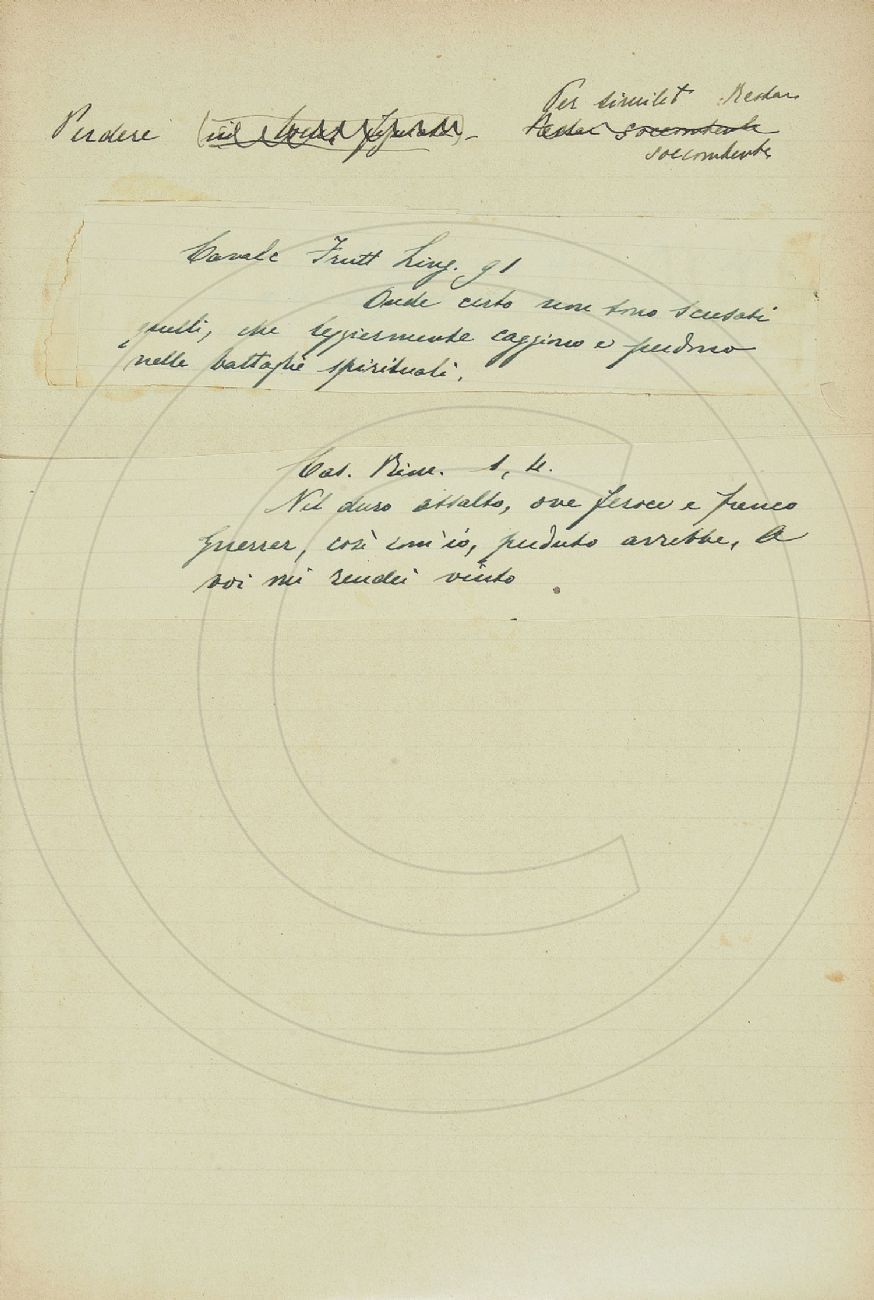 Per similit. Restar
Perdere
Restar soccombente
soccombente
Cavalc Frutt Ling. 91
Onde certo non sono scusati
quelli, che leggiermente caggiono e perdono
nelle battaglie spirituali.
Cas. Rim. 1, 4.
Nel duro assalto, ove feroce e franco
Guerrer, così com'io, perduto avrebbe, A
voi mi rendei vinto